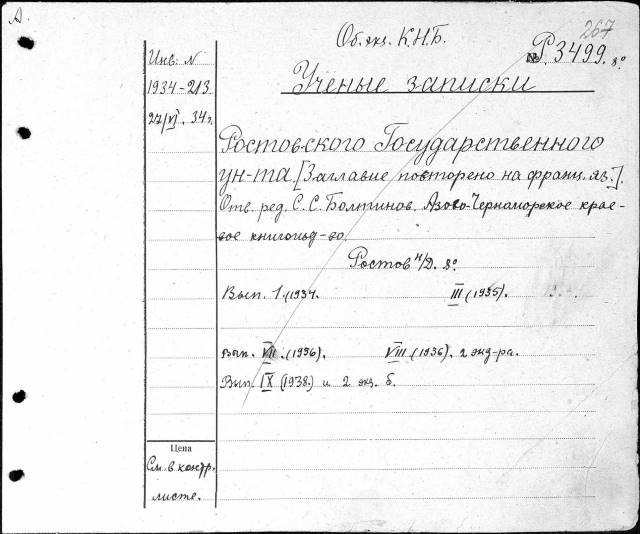 А.
267
Об. экз. К.Н.Б.
№ Р.3499. 8°
Инв: N
1934-213
27/VI. 34 г.
Ученые записки
Ростовского Государственного
ун-та. [Заглавие повторено на франц. яз.].
Отв. ред. С. С. Болтинов. Азово-Черноморское крае-
вое книгоизд-во.
Ростов н/Д. 8°
Вып. 1. (1934. III (1935).
Вып. VII. (1936). VIII (1936). 2 экз-ра.
Вып. IX (1938.) и 2 экз. б.
Цена
См. в контр.
листе.